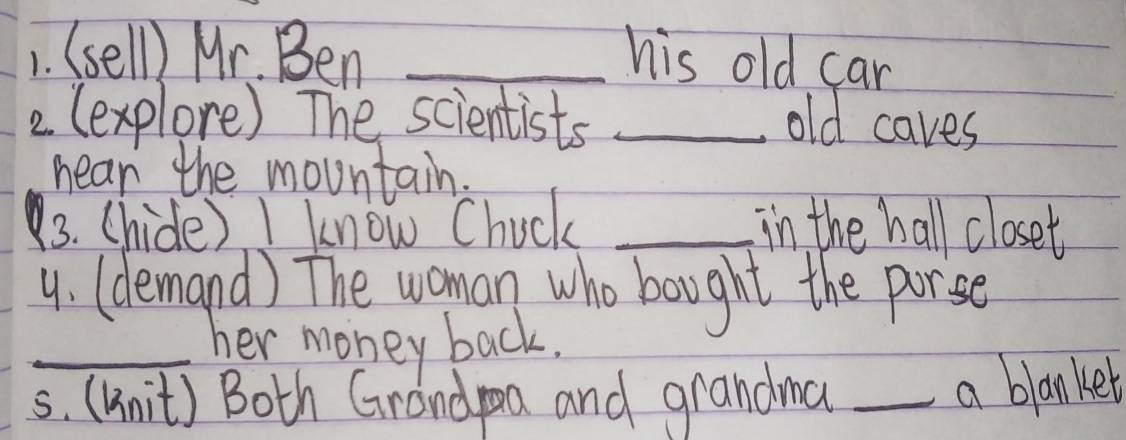 1. (sell) Mr. Ben ______ his old car
2. (explore) The scientists ______ old caves
near the mountain.
3. (hide) I know Chuck ______ in the hall closet
4. (demand) The woman who bought the purse
______ her money back.
5. (knit) Both Grandpa and grandma ___ a blanket